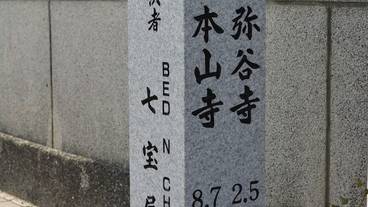 弥谷寺 2.5
本山寺 8.7
者
BED N CH
七宝